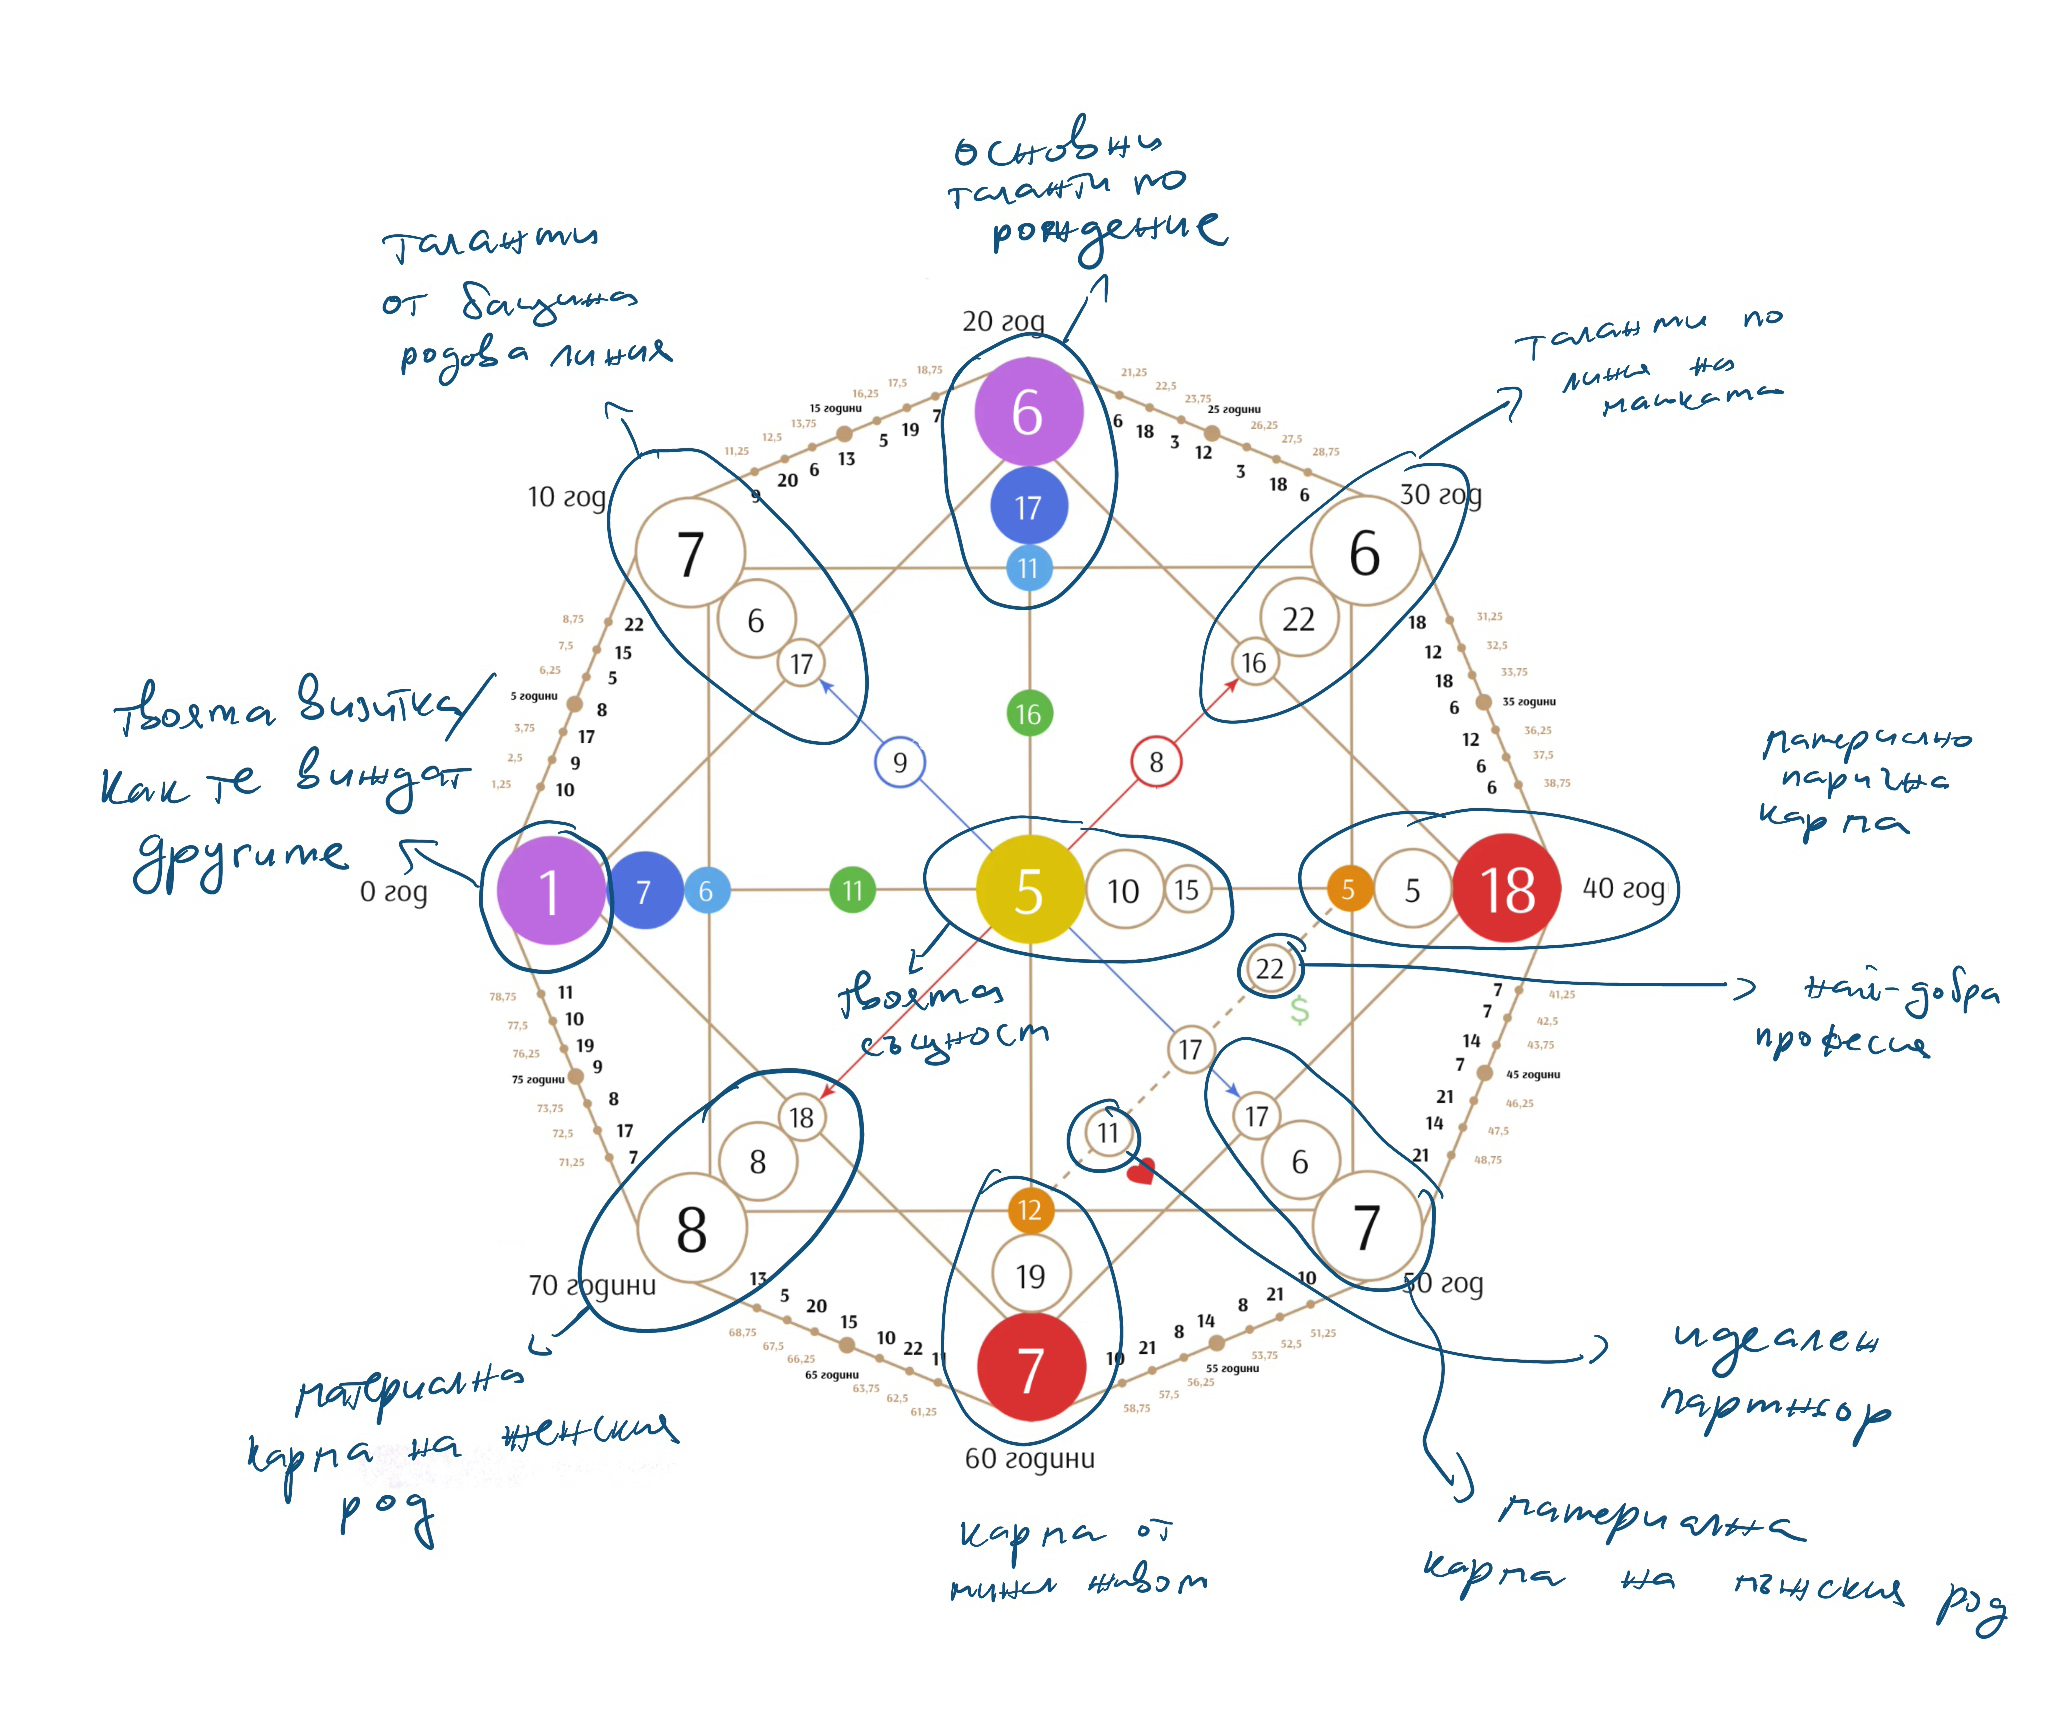 основни
таланти по
рождение
таланти
от бащина
родова линия
таланти по
линия на
майката
20 год
10 год
30 год
18,75
17,5
16,25
15 години
13,75
12,5
11,25
7
19
5
13
6
20
9
21,25
22,5
23,75
25 години
26,25
27,5
28,75
6
18
3
12
3
18
6
6
17
11
7
6
17
6
22
16
8,75
7,5
6,25
5 години
3,75
2,5
1,25
22
15
5
8
17
9
10
18
12
18
6
12
6
6
31,25
32,5
33,75
35 години
36,25
37,5
38,75
16
9
8
твоята визитка/
как те виждат
другите
материално
парична
карма
0 год
1
7
6
11
5
10
15
5
5
18
40 год
22
$
най-добра
професия
твоята
същност
17
11
78,75
77,5
76,25
75 години
73,75
72,5
71,25
11
10
19
9
8
17
7
7
7
14
7
21
14
21
41,25
42,5
43,75
45 години
46,25
47,5
48,75
18
8
8
17
6
7
12
19
7
70 години
50 год
13
5
20
15
10
22
11
68,75
67,5
66,25
65 години
63,75
62,5
61,25
10
21
8
14
8
21
10
58,75
57,5
56,25
55 години
53,75
52,5
51,25
60 години
идеален
партньор
материална
карма на женския
род
карма от
минал живот
материална
карма на мъжския род